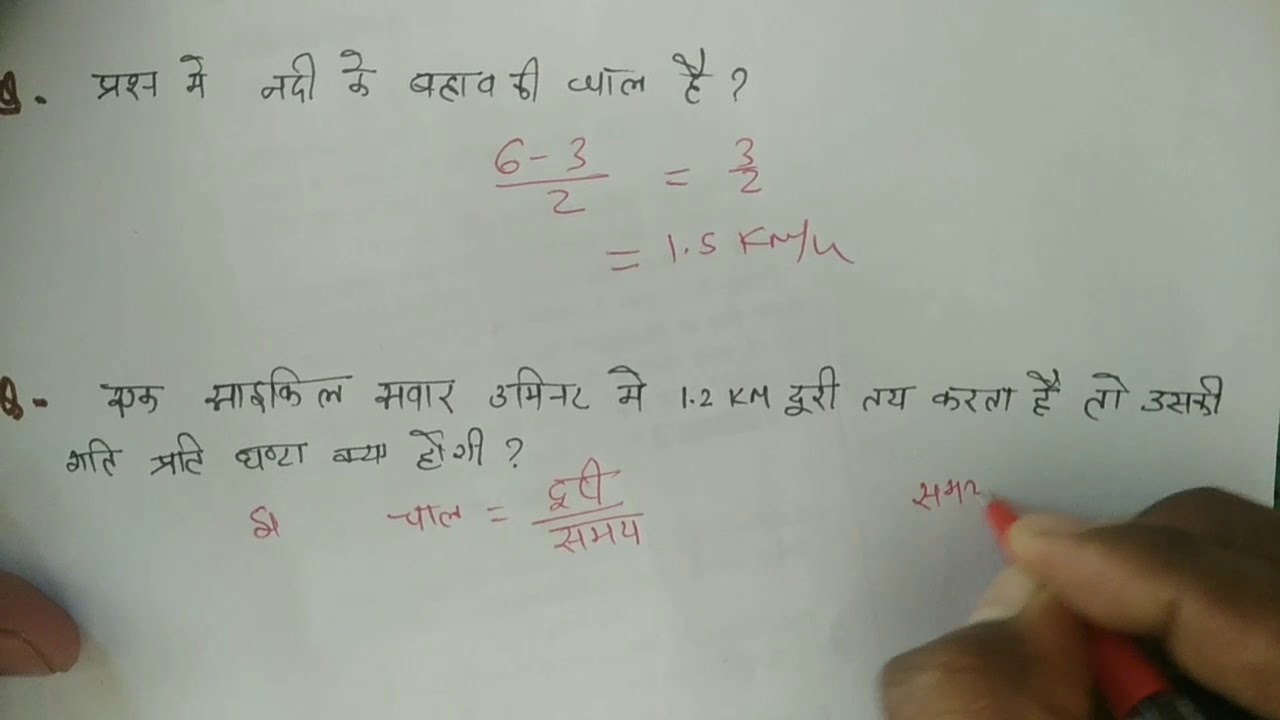 Q. प्रश्न मे नदी के बहाव की चाल है ?
6 - 3 / 2 = 3/2
= 1.5 KM/h
Q- एक साइकिल सवार 3 मिनट मे 1.2 KM दूरी तय करता है तो उसकी
गति प्रति घण्टा क्या होगी ?
चाल = दूरी / समय